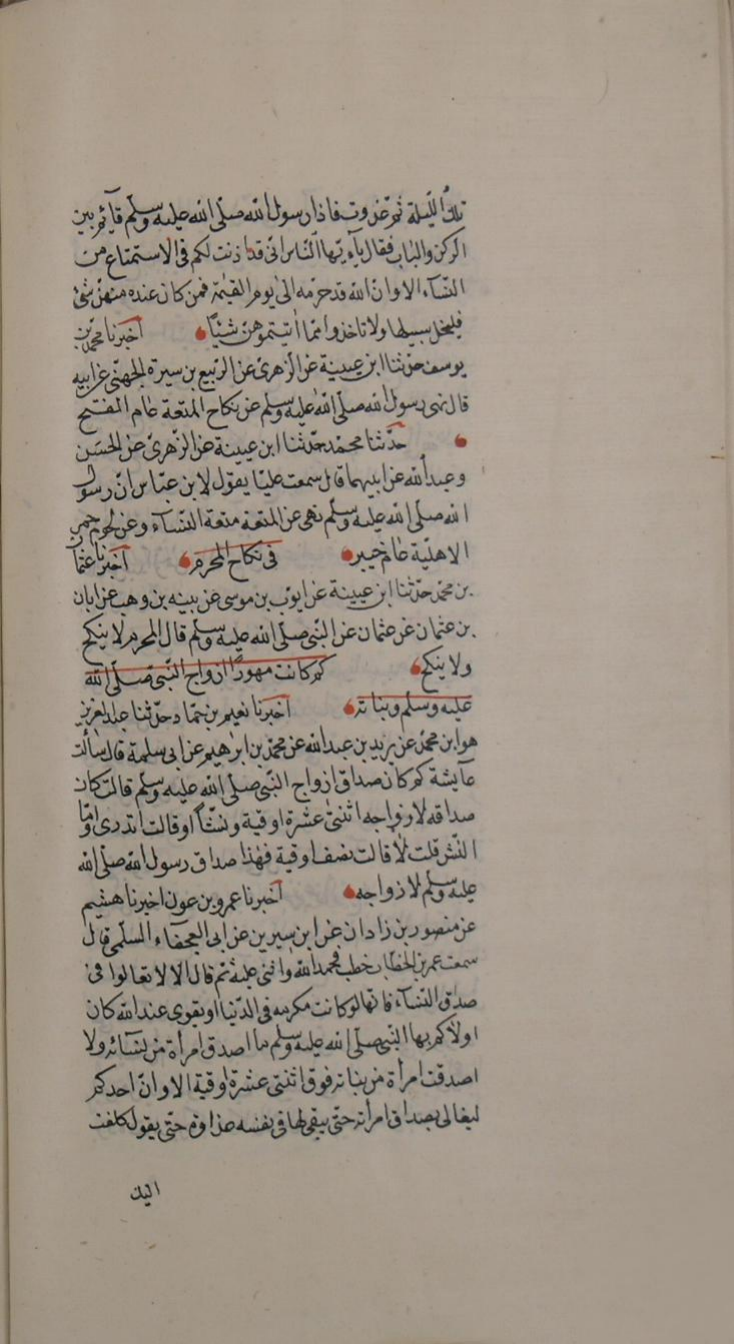 تلك الليلة ثم غدوت فاذا رسول الله صلى الله عليه وسلم قائم بين
الركن والباب فقال يا ءيها الناس انى قد اذنت لكم فى الاستمتاع من
النساء الا وان الله قد حرمه الى يوم القيمة فمن كان عنده منهن شئ
فليخل سبيلها ولا تاخذوا مما اتيتموهن شيئا اخبرنا محمد بن
يوسف حدثنا ابن عيينة عن الزهرى عن الربيع بن سبرة الجهنى عن ابيه
قال نهى رسول الله صلى الله عليه وسلم عن نكاح المتعة عام الفتح
حدثنا محمد حدثنا ابن عيينة عن الزهرى عن الحسن
وعبد الله عن ابيهما قال سمعت عليا يقول لابن عباس ان رسول
الله صلى الله عليه وسلم نهى عن المتعة متعة النساء وعن لحوم حمر
الاهلية عام خيبر فى نكاح المحرم اخبرنا عثما
بن محمد حدثنا ابن عيينة عن ايوب بن موسى عن نبيه بن وهب عن ابان
بن عثمان عن عثمان عن النبى صلى الله عليه وسلم قال المحرم لا ينكح
ولا ينكح كم كانت مهور ازواج النبى صلى الله
عليه وسلم وبناته اخبرنا نعيم بن حماد حدثنا عبد العزيز
هو ابن محمد عن يزيد بن عبد الله عن محمد بن ابرهيم عن ابى سلمة قال سألت
عايشة كم كان صداق ازواج النبى صلى الله عليه وسلم قالت كان
صداقه لازواجه اثنتى عشرة اوقية ونشا وقالت اتدرى ما
النش قلت لا قالت نصف اوقية فهذا صداق رسول الله صلى الله
عليه وسلم لازواجه اخبرنا عمرو بن عون اخبرنا هشيم
عن منصور بن زاذان عن ابن سيرين عن ابى العجفاء السلمى قال
سمعت عمر بن الخطاب خطب فحمد الله واثنى عليه ثم قال الا لا تغالوا فى
صدق النساء فانها لو كانت مكرمه فى الدنيا او تقوى عند الله كان
اولاكم بها النبى صلى الله عليه وسلم ما اصدق امرأة من نسائه ولا
اصدقت امرأة من بناته فوق اثنتى عشرة اوقية الا وان احدكم
ليغالى بصداق امرأته حتى يبقى لها فى نفسه عداوة حتى يقول كلفت
اليك